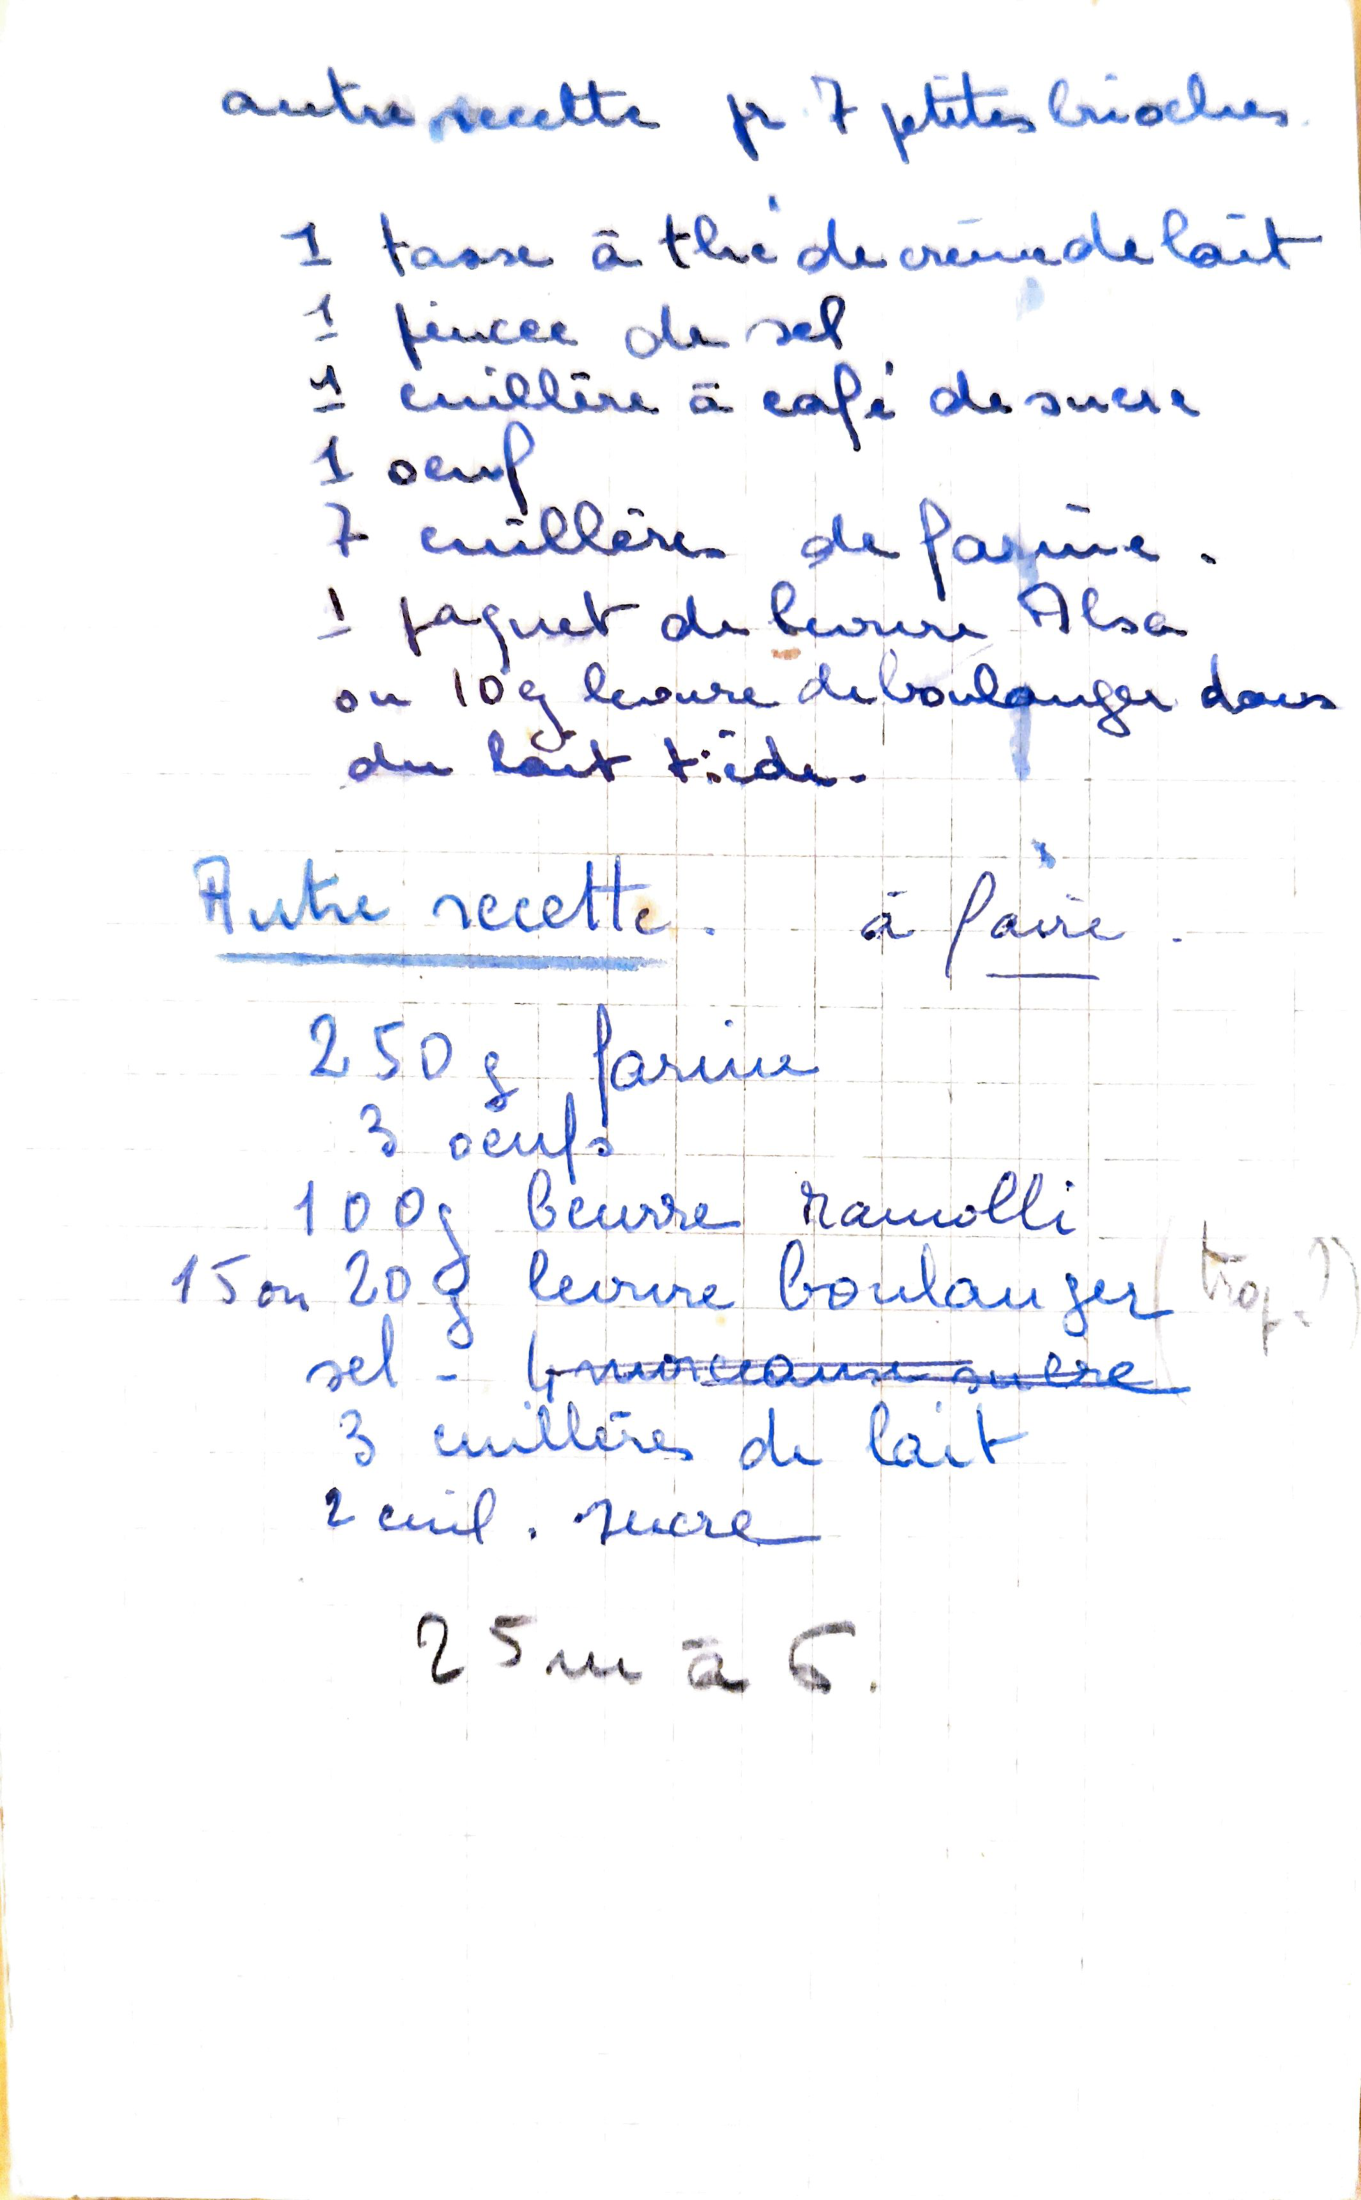 autre recette pr 7 petites brioches.
1 tasse à thé de crème de lait
1 pincée de sel
1 cuillère à café de sucre
1 oeuf
7 cuillères de farine.
1 paquet de levure Alsa
ou 10g levure de boulanger dans
du lait tiède.
Autre recette. à faire.
250g farine
3 oeufs
100g beurre ramolli
15 ou 20g levure boulanger (trop?)
sel - 4 morceaux sucre
3 cuillères de lait
2 cuil. sucre
25m à 6.